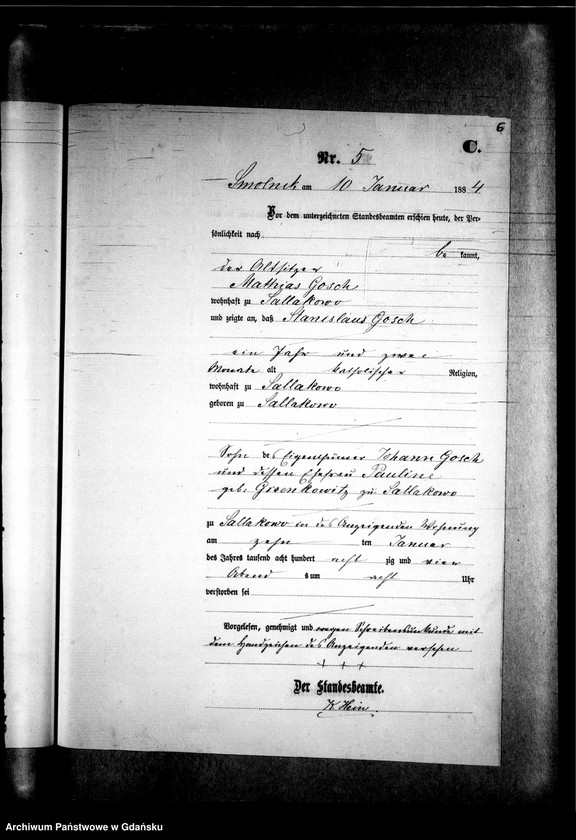 6
C.
Nr. 5
Smolnik am 10 Januar 1884
Vor dem unterzeichneten Standesbeamten erschien heute, der Per-
sönlichkeit nach
be kannt,
der Altsitzer
Mathias Gosch
wohnhaft zu Sallakowo
und zeigte an, daß Stanislaus Gosch
ein Jahr und zwei
Monate alt katholischer Religion,
wohnhaft zu Sallakowo
geboren zu Sallakowo
Sohn des Eigenthümer Johann Gosch
und dessen Ehefrau Pauline
geb. zu Sallakowo
zu Sallakowo in des Anzeigenden Wohnung
am zehn ten Januar
des Jahres tausend acht hundert acht zig und vier
Abend s um acht Uhr
verstorben sei
Vorgelesen, genehmigt und wegen Schreibensunkunde mit
dem Handzeichen des Anzeigenden versehen
+ + +
Der Standesbeamte.
K Hein.
Archiwum Państwowe w Gdańsku